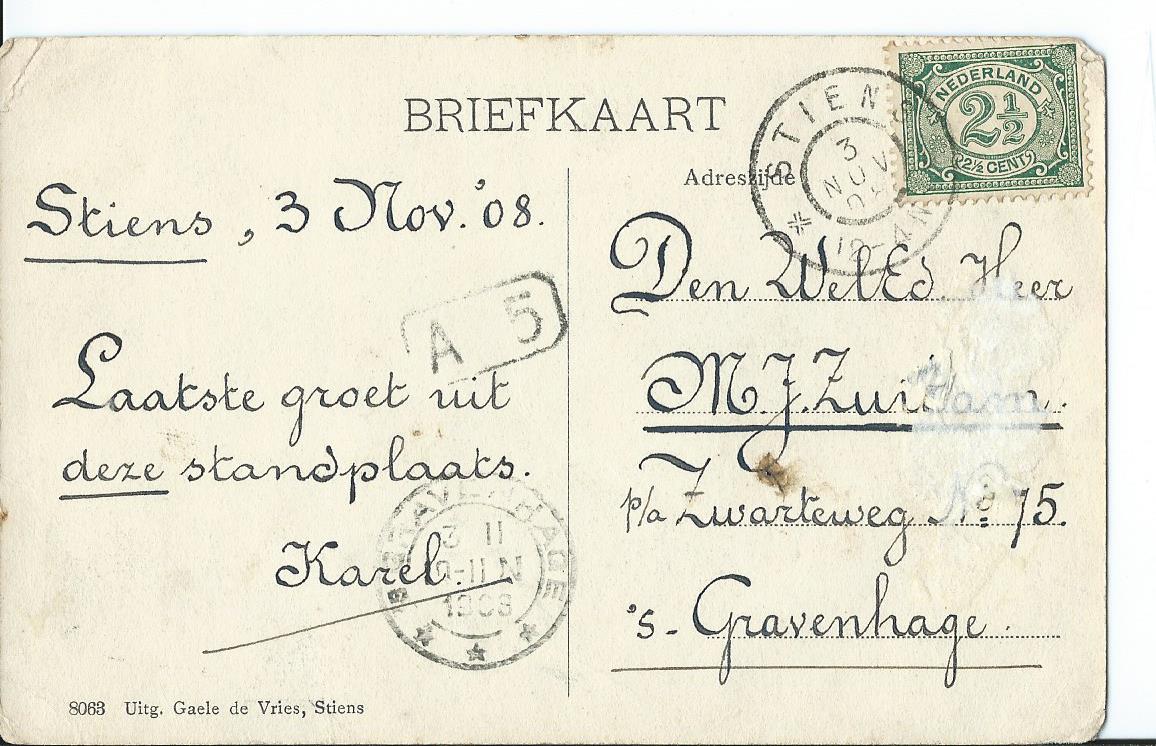 BRIEFKAART
Adreszijde
NEDERLAND
2½
2½ CENT
STIENS
3
NOV
12-4N
Stiens, 3 Nov. '08.
A 5
Laatste groet uit
deze standplaats.
Karel.
'S GRAVENHAGE
3 11
-11 N
1908
Den WelEd. Heer
M. J. Zuidam.
p/a Zwarteweg No: 75.
's-Gravenhage.
8063 Uitg. Gaele de Vries, Stiens